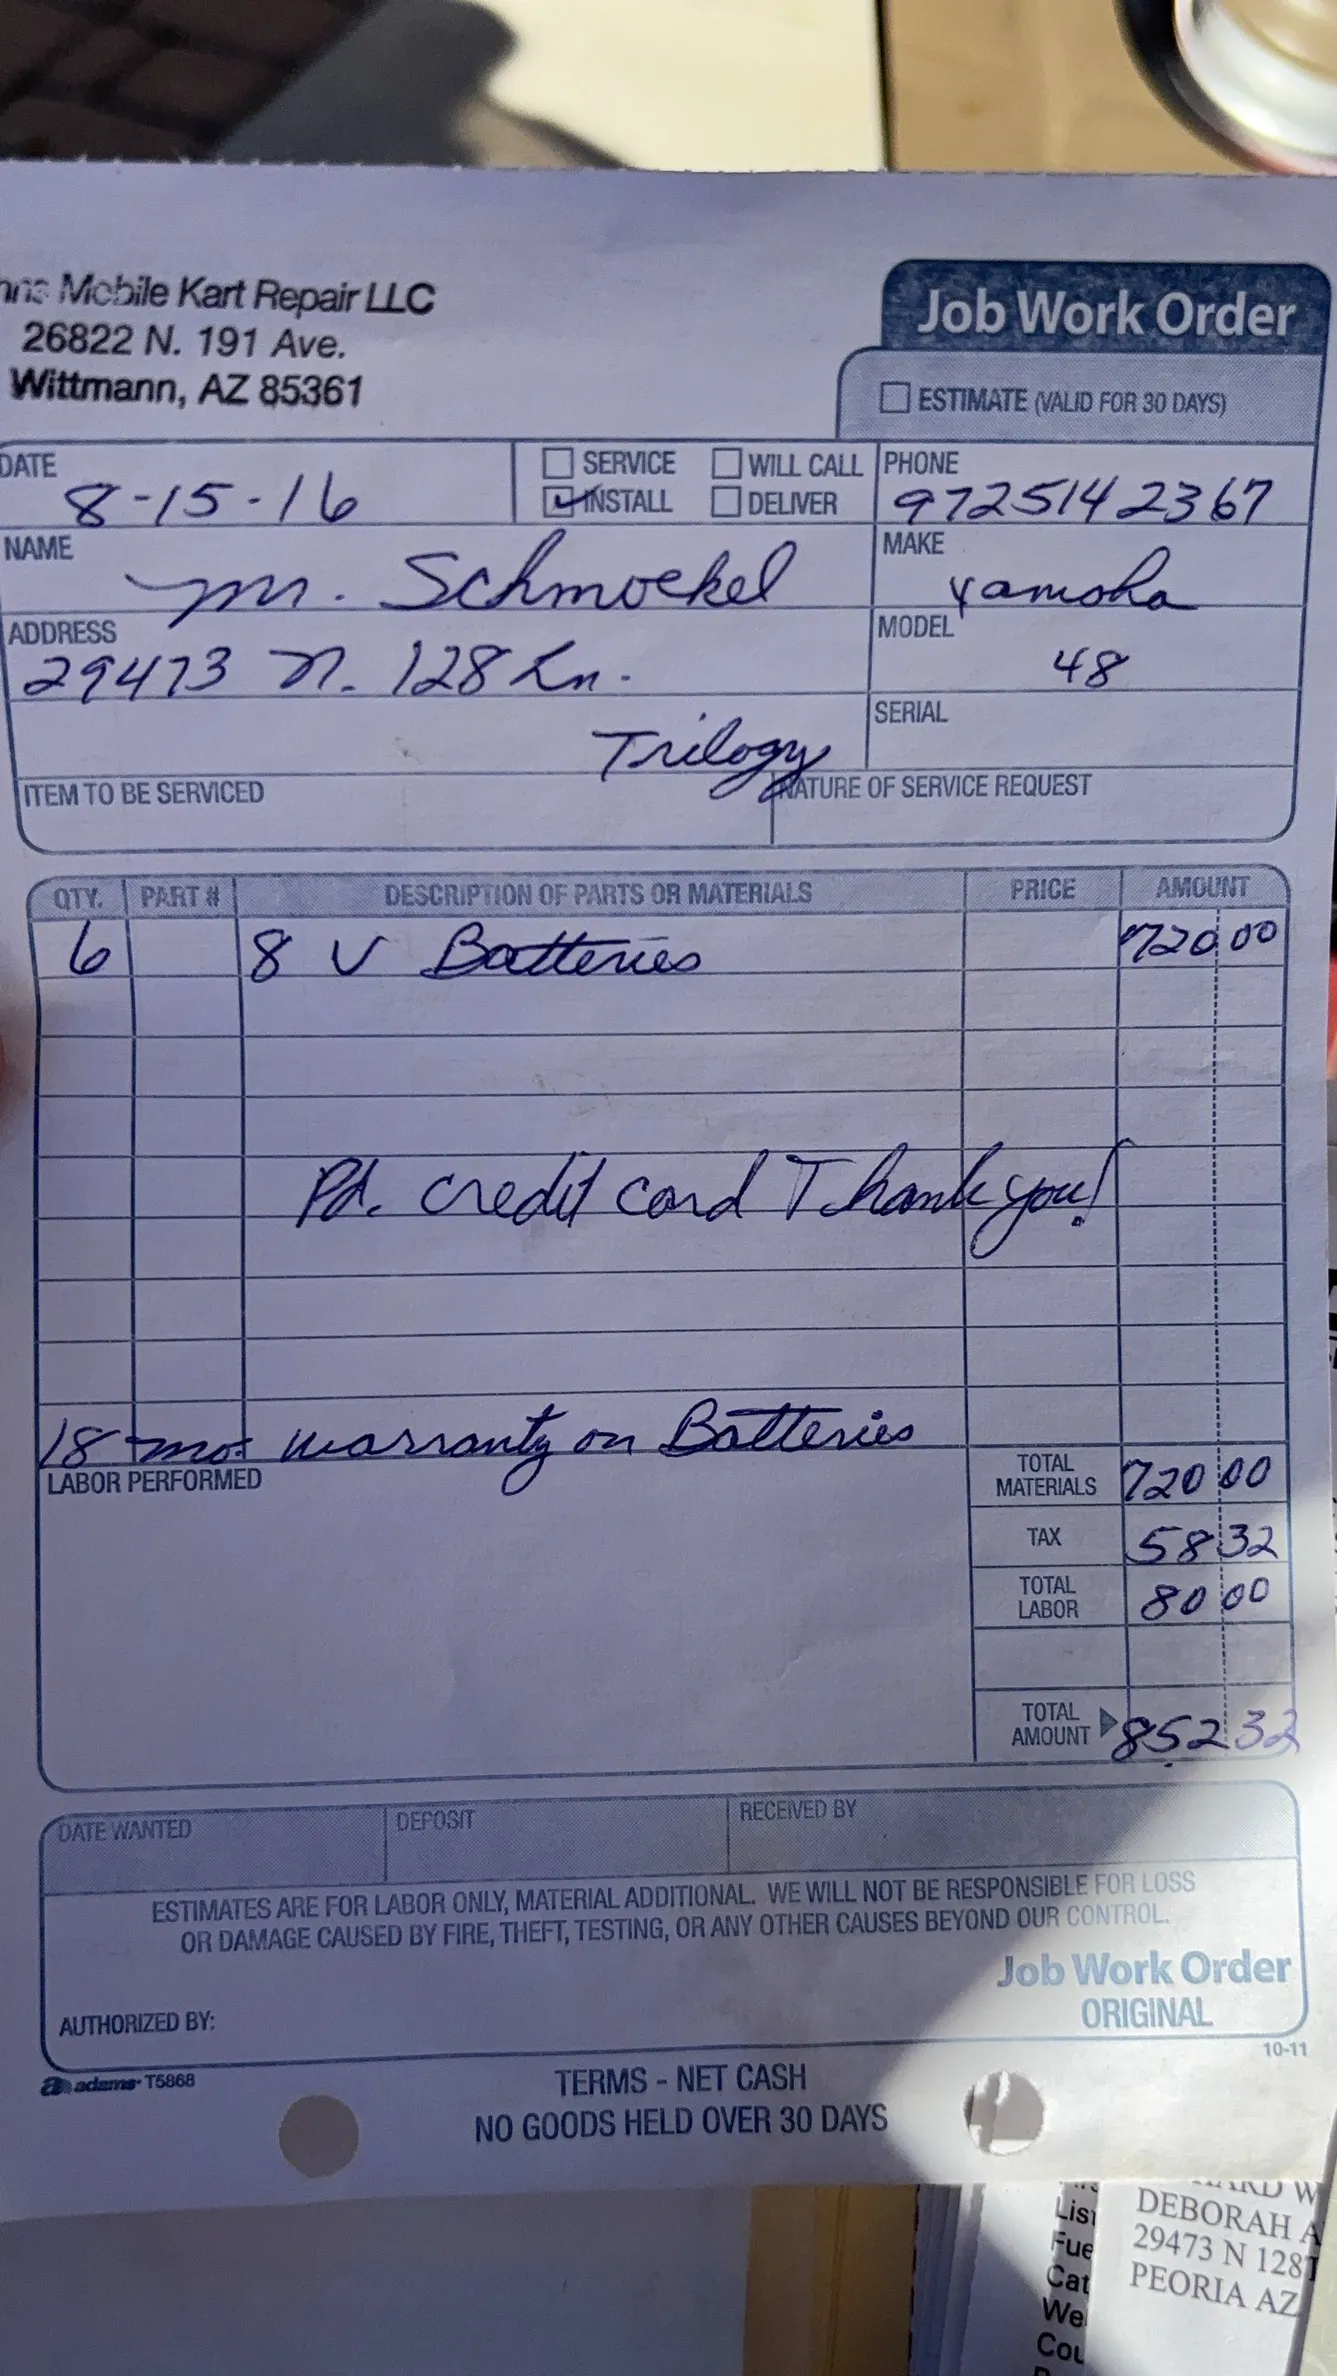 Mobile Kart Repair LLC
26822 N. 191 Ave.
Wittmann, AZ 85361
Job Work Order
ESTIMATE (VALID FOR 30 DAYS)
DATE 8-15-16
SERVICE WILL CALL
INSTALL DELIVER
PHONE 9725142367
NAME M. Schmoekel
MAKE Yamaha
ADDRESS 29473 N. 128 Ln.
MODEL 48
Trilogy
SERIAL
ITEM TO BE SERVICED NATURE OF SERVICE REQUEST
QTY. PART # DESCRIPTION OF PARTS OR MATERIALS PRICE AMOUNT
6 8 V Batteries 720.00
Pd. credit card Thank you!
18 mo. warranty on Batteries
LABOR PERFORMED
TOTAL MATERIALS 720 00
TAX 58 32
TOTAL LABOR 80 00
TOTAL AMOUNT 852 32
DATE WANTED DEPOSIT RECEIVED BY
ESTIMATES ARE FOR LABOR ONLY, MATERIAL ADDITIONAL. WE WILL NOT BE RESPONSIBLE FOR LOSS
OR DAMAGE CAUSED BY FIRE, THEFT, TESTING, OR ANY OTHER CAUSES BEYOND OUR CONTROL.
Job Work Order
ORIGINAL
AUTHORIZED BY:
10-11
adams T5868
TERMS - NET CASH
NO GOODS HELD OVER 30 DAYS
DEBORAH A
29473 N 128T
PEORIA AZ